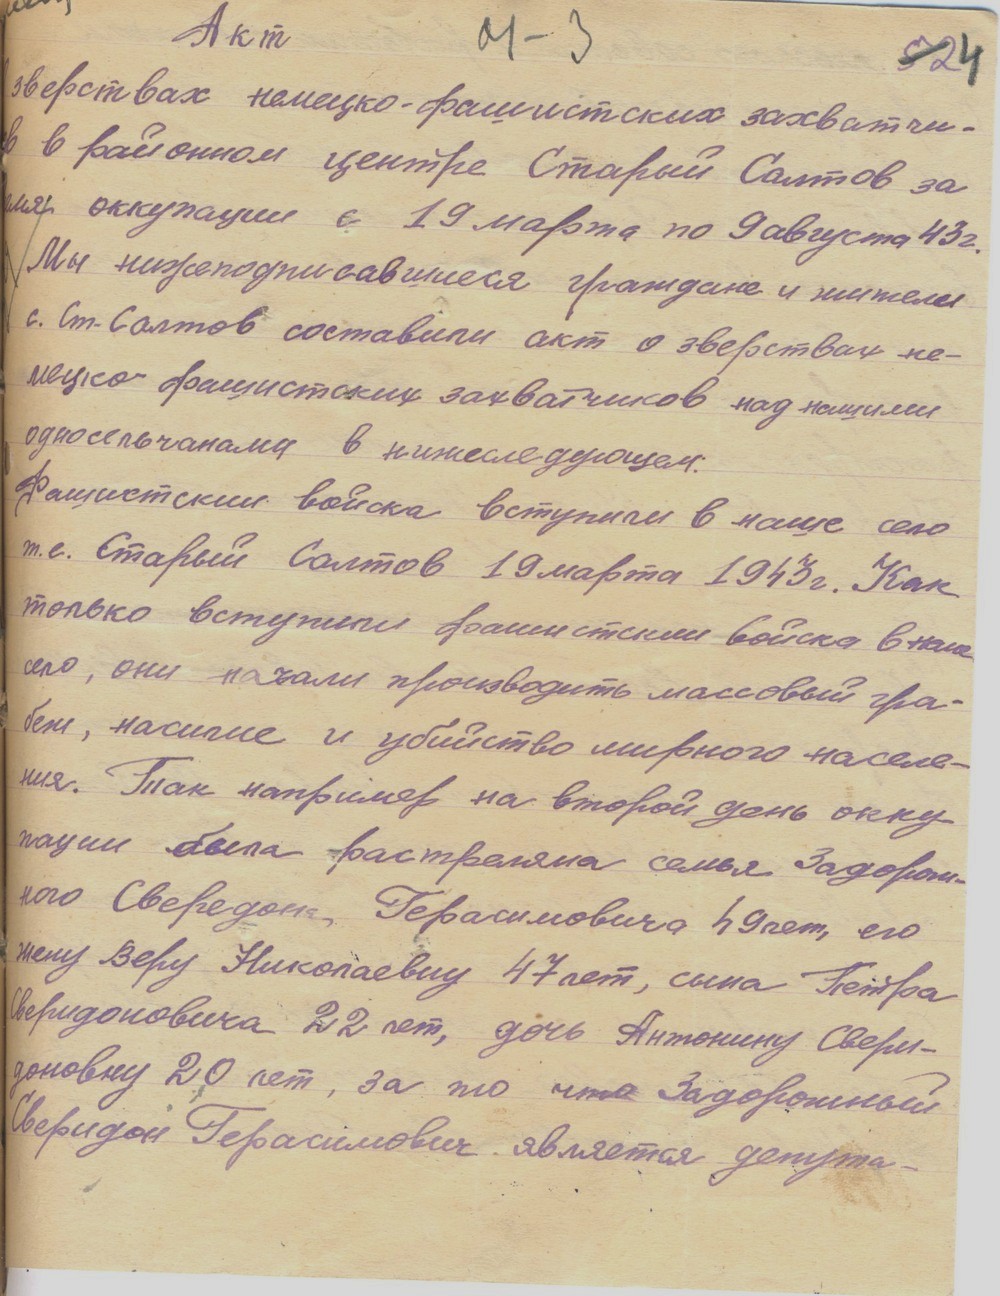 Акт М-3 24
зверствах немецко-фашистских захватчи-
ов в районном центре Старый Салтов за
емя оккупации с 19 марта по 9 августа 43 г.
Мы нижеподписавшиеся граждане и жители
с. Ст-Салтов составили акт о зверствах не-
мецко-фашистских захватчиков над нашими
односельчанами в нижеследующем:
Фашистские войска вступили в наше село
т.е. Старый Салтов 19 марта 1943 г. Как
только вступили фашистские войска в наше
село, они начали производить массовый гра-
беж, насилие и убийство мирного населе-
ния. Так например на второй день окку
пации была растреляна семья Задорож-
ного Свередона Герасимовича 49 лет, его
жену Веру Николаевну 47 лет, сына Петра
Сверидоновича 22 лет, дочь Антонину Свери-
доновну 20 лет, за то что Задорожный
Сверидон Герасимович является депута-